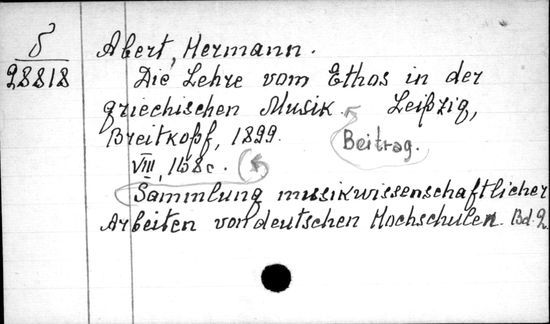 δ
98818
Abert, Hermann.
Die Lehre vom Ethos in der
griechischen Musik. Leipzig,
Breitkopf, 1899.
Beitrag.
VIII, 168 c.
Sammlung musikwissenschaftlicher
Arbeiten von deutschen Hochschulen. Bd. 2.